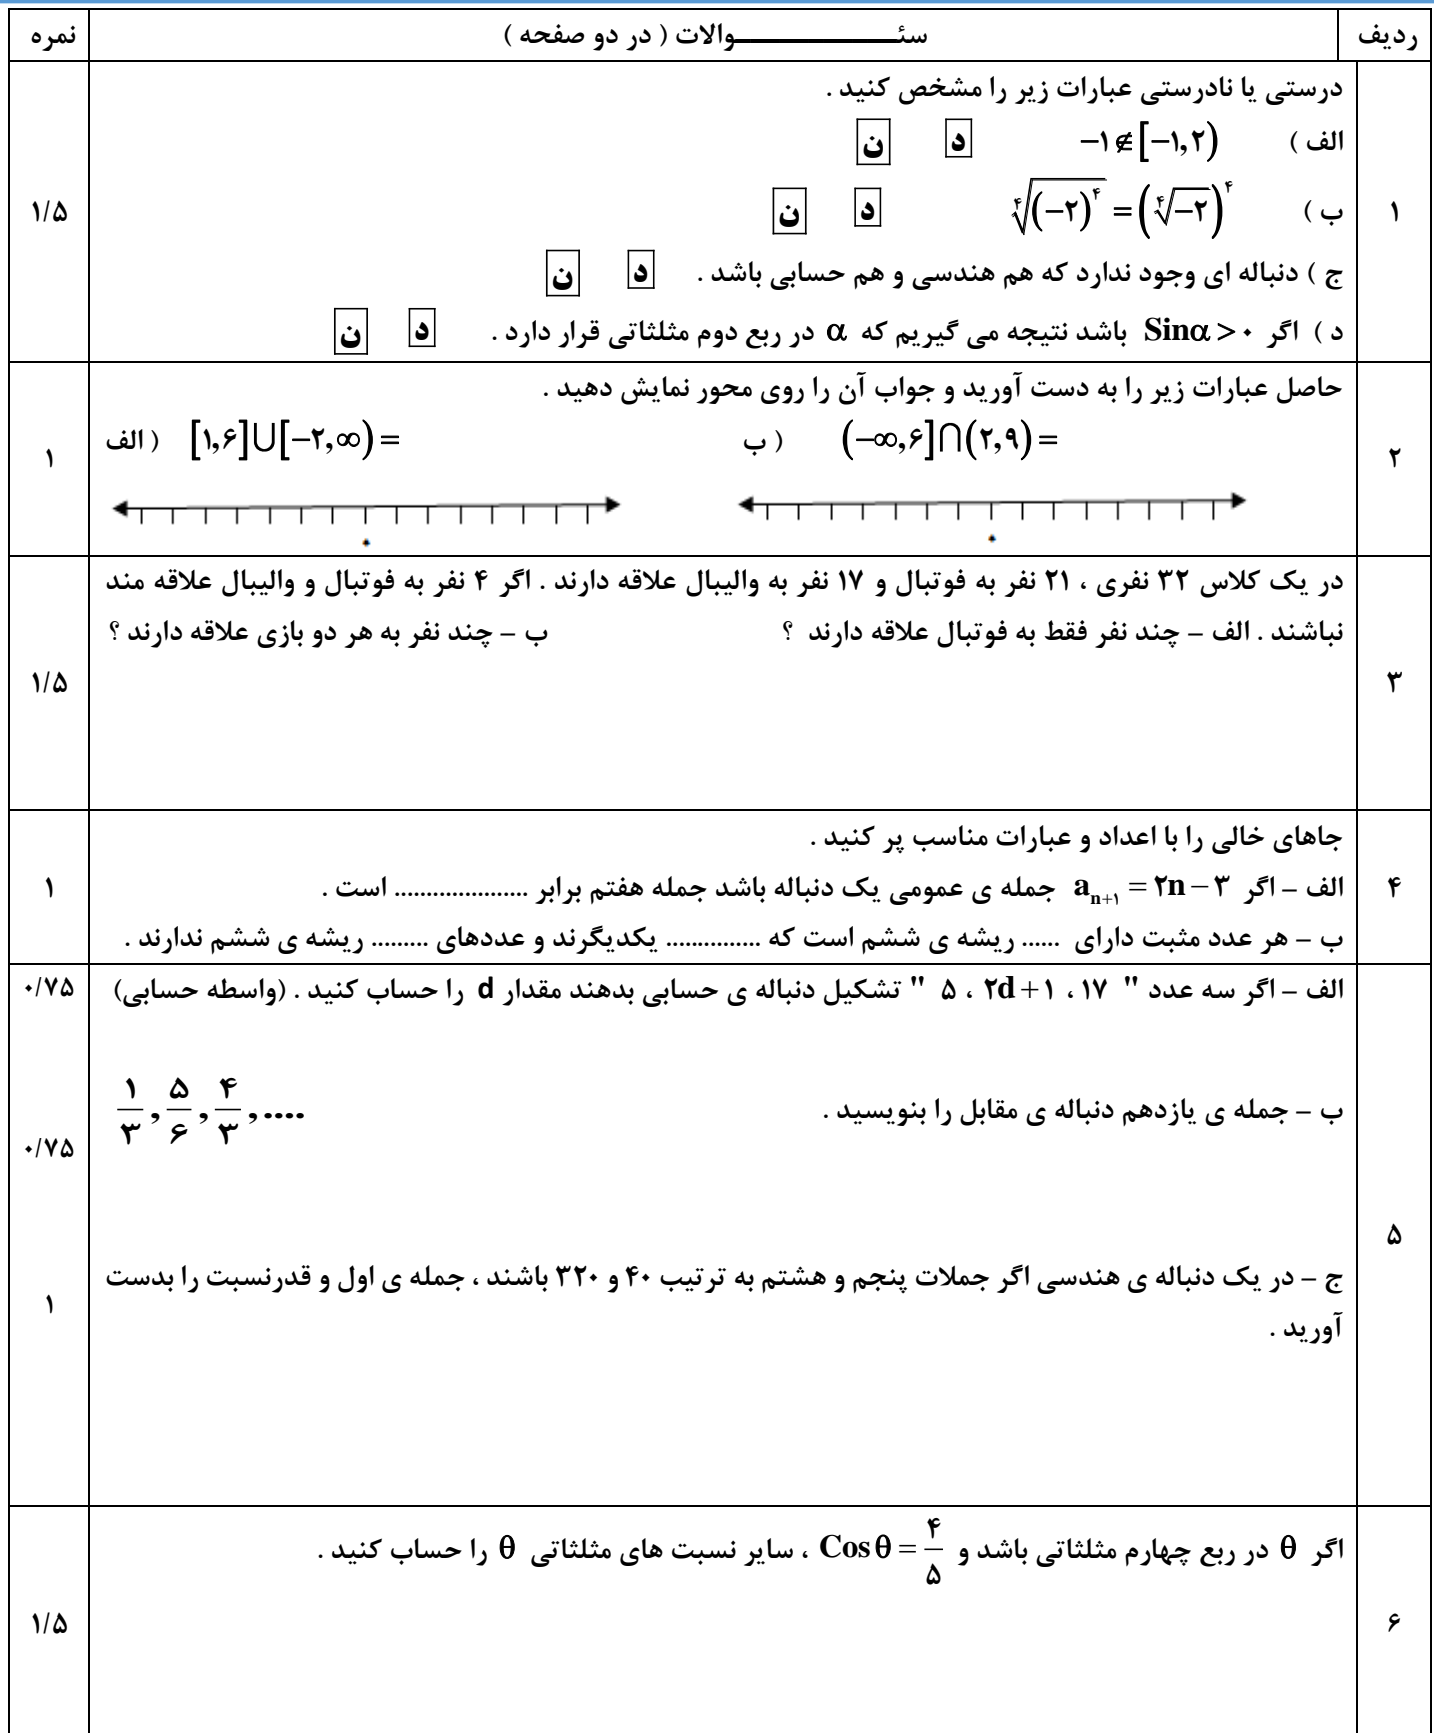 ردیف سئـــــــــــــــــوالات ( در دو صفحه ) نمره
۱ درستی یا نادرستی عبارات زیر را مشخص کنید . ۱/۵
الف ) −۱ ∉ [−۱,۲) د ن
ب ) ∜(−۲)^۴ = (∜−۲)^۴ د ن
ج ) دنباله ای وجود ندارد که هم هندسی و هم حسابی باشد . د ن
د ) اگر Sinα > ۰ باشد نتیجه می گیریم که α در ربع دوم مثلثاتی قرار دارد . د ن
۲ حاصل عبارات زیر را به دست آورید و جواب آن را روی محور نمایش دهید . ۱
الف ) [۱,۶]∪[−۲,∞) = ب ) (−∞,۶]∩(۲,۹) =
۰ ۰
۳ در یک کلاس ۳۲ نفری ، ۲۱ نفر به فوتبال و ۱۷ نفر به والیبال علاقه دارند . اگر ۴ نفر به فوتبال و والیبال علاقه مند ۱/۵
نباشند . الف – چند نفر فقط به فوتبال علاقه دارند ؟ ب – چند نفر به هر دو بازی علاقه دارند ؟
۴ جاهای خالی را با اعداد و عبارات مناسب پر کنید . ۱
الف – اگر a_{n+۱} = ۲n − ۳ جمله ی عمومی یک دنباله باشد جمله هفتم برابر ..................... است .
ب – هر عدد مثبت دارای ...... ریشه ی ششم است که ............... یکدیگرند و عددهای ......... ریشه ی ششم ندارند .
۵ الف – اگر سه عدد " ۱۷ ، ۲d+۱ ، ۵ " تشکیل دنباله ی حسابی بدهند مقدار d را حساب کنید . (واسطه حسابی) ۰/۷۵
ب – جمله ی یازدهم دنباله ی مقابل را بنویسید . ۱/۳ , ۵/۶ , ۴/۳ , .... ۰/۷۵
ج – در یک دنباله ی هندسی اگر جملات پنجم و هشتم به ترتیب ۴۰ و ۳۲۰ باشند ، جمله ی اول و قدرنسبت را بدست ۱
آورید .
۶ اگر θ در ربع چهارم مثلثاتی باشد و Cosθ = ۴/۵ ، سایر نسبت های مثلثاتی θ را حساب کنید . ۱/۵